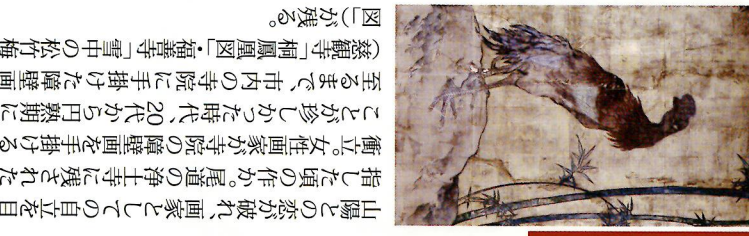 山陽との恋が破れ、画家としての自立を目
指した頃の作か。尾道の浄土寺に残された
衝立。女性画家が寺院の障壁画を手掛ける
ことが珍しかった時代、20代から円熟期に
至るまで、市内の寺院に手掛けた障壁画
（慈観寺「桐鳳凰図」・福善寺「雪中の松竹梅
図」）が残る。